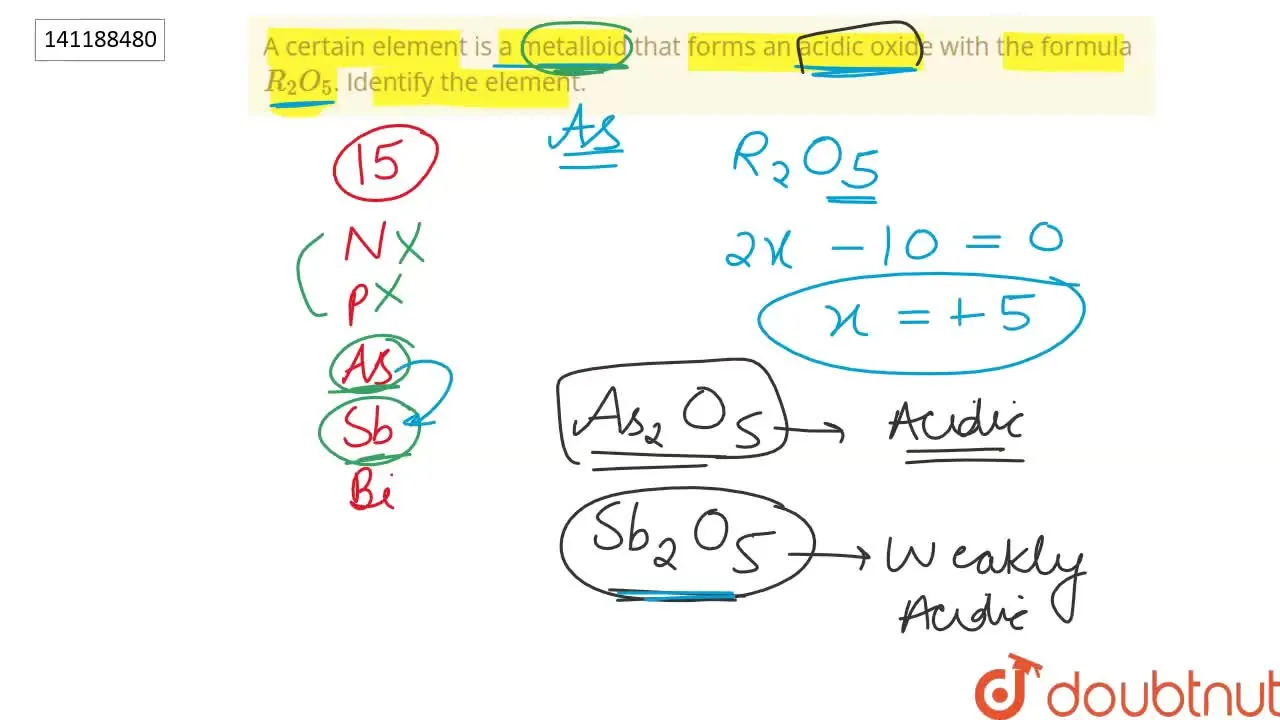 141188480
A certain element is a metalloid that forms an acidic oxide with the formula
R₂O₅. Identify the element.
As
15
R₂O₅
N X
2x - 10 = 0
P X
x = +5
As
As₂O₅ → Acidic
Sb
Bi
Sb₂O₅ → Weakly
Acidic
doubtnut